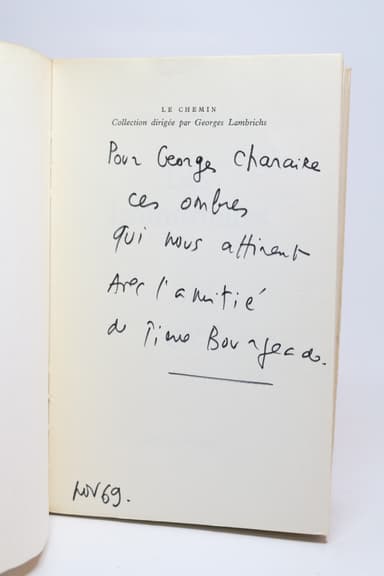 LE CHEMIN
Collection dirigée par Georges Lambrichs
Pour Georges Charaire
ces ombres
qui nous attirent
Avec l'amitié
de Pierre Bourgeade.
NOV 69.